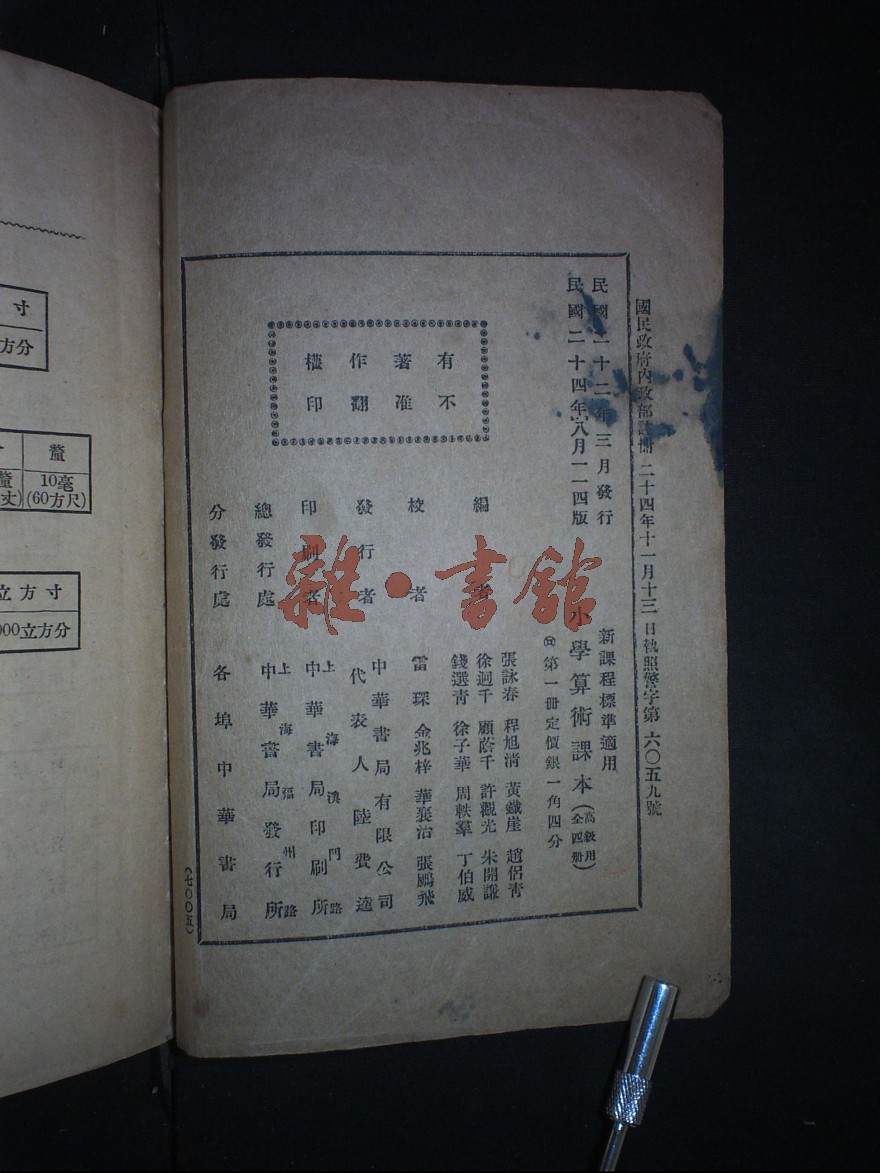 國民政府內政部註冊二十四年十一月十三日執照警字第六〇五九號
民國二十二年三月發行
民國二十四年八月一一四版
新課程標準適用
小學算術課本(高級用全四冊)
第一冊定價銀一角四分
有著作權
不准翻印
編者
張詠春 程旭清 黃鐵崖 趙侶青
徐迥千 顧蔭千 許觀光 朱開謙
錢選青 徐子華 周軼羣 丁伯威
校者
雷琛 金兆梓 華襄治 張鵬飛
發行者
中華書局有限公司
代表人 陸費逵
印刷者
上海澳門路
中華書局印刷所
總發行處
上海福州路
中華書局發行所
分發行處
各埠中華書局
(七〇〇五)
雜·書館
寸
方分
釐
10毫
(60方尺)
釐
丈)
立方寸
000立方分